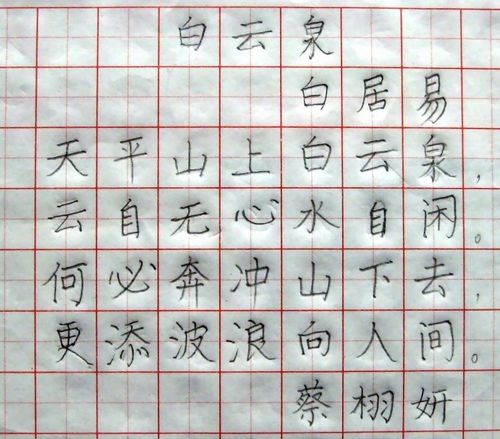 白云泉
白居易
天平山上白云泉，
云自无心水自闲。
何必奔冲山下去，
更添波浪向人间。
蔡栩妍